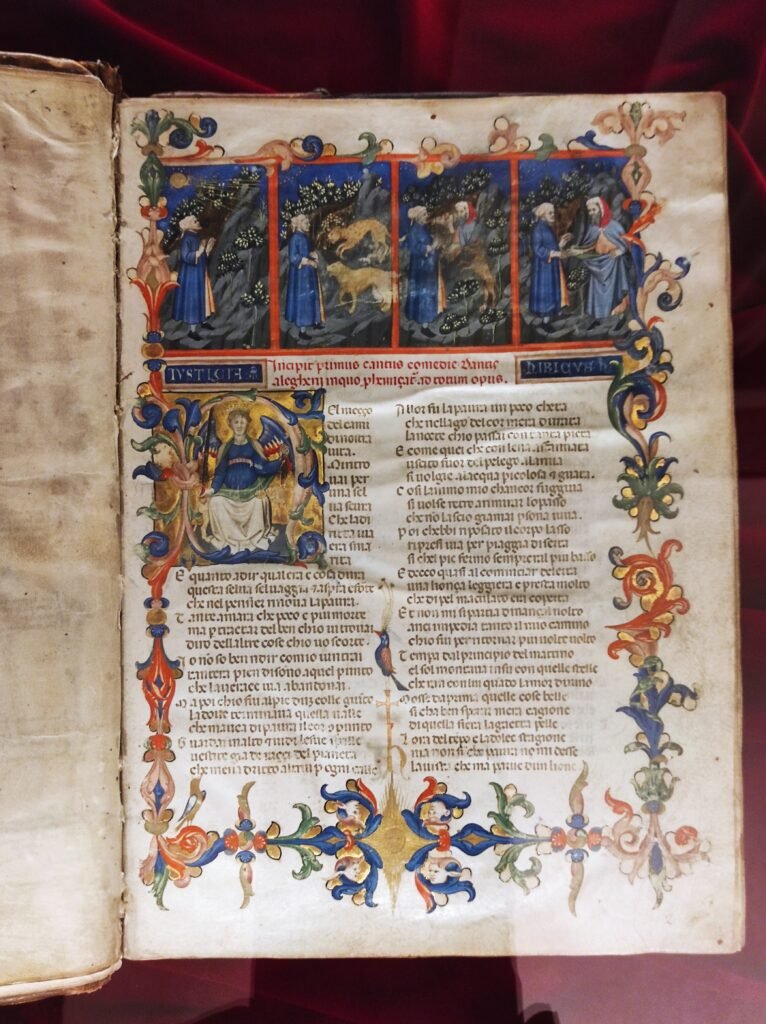 IVSTICIA
Incipit primus cantus comedie Dantis
alegherij in quo ad totum opus.
El meçço
del cami
di nostra
uita.
Mi ritro
uai per
una sel
ua scura
Che la di
ritta uia
era sma
rita
E quanto a dir qual era e cosa dura
questa selua seluaggia & aspra e forte
che nel pensier rinoua la paura.
Tant e amara che poco e piu morte
ma p tractar del ben chio ui trouai
diro dellaltre cose chio uo scorte.
Io no so ben ridir comio uintrai
tantera pien di sono a quel punto
che la uerace uia abandonai.
Ma poi chio fui al pie dun colle giunto
la doue terminaua quella ualle
che mauea di paura il cor punto
Guardai in alto & uidi le sue spalle
uestite gia de raggi del pianeta
che mena dritto altrui p ogni calle
Allor fu la paura un poco cheta
che nel lago del cor mera durata
la nocte chio passai con tanta pieta
E come quei che con lena affannata
uscito fuor del pelego alla riua
si uolgie allacqua picolosa & guata.
Cosi lanimo mio chancor fuggiua
si uolse retro a rimirar lo passo
che no lascio giamai psona uiua.
Poi chebbi riposato il corpo lasso
ripresi uia per piaggia diserta
si chel pie fermo sempre era il piu basso
Et ecco quasi al cominciar del erta
una lonça leggiera e presta molto
che di pel maculato era coperta
Et non mi si partia dinançi al uolto
anci impedia tanto il mio camino
chio fui per ritornar piu uolte uolto
Temp era dal principio del matino
el sol montaua in su con quelle stelle
cheran con lui quando lamor diuino
Mosse da prima quelle cose belle
si cha ben sperar mera cagione
di quella fiera la gaetta pelle
Lora del tempo e la dolce stagione
ma non si che paura no mi desse
la uista che ma parue dun lione